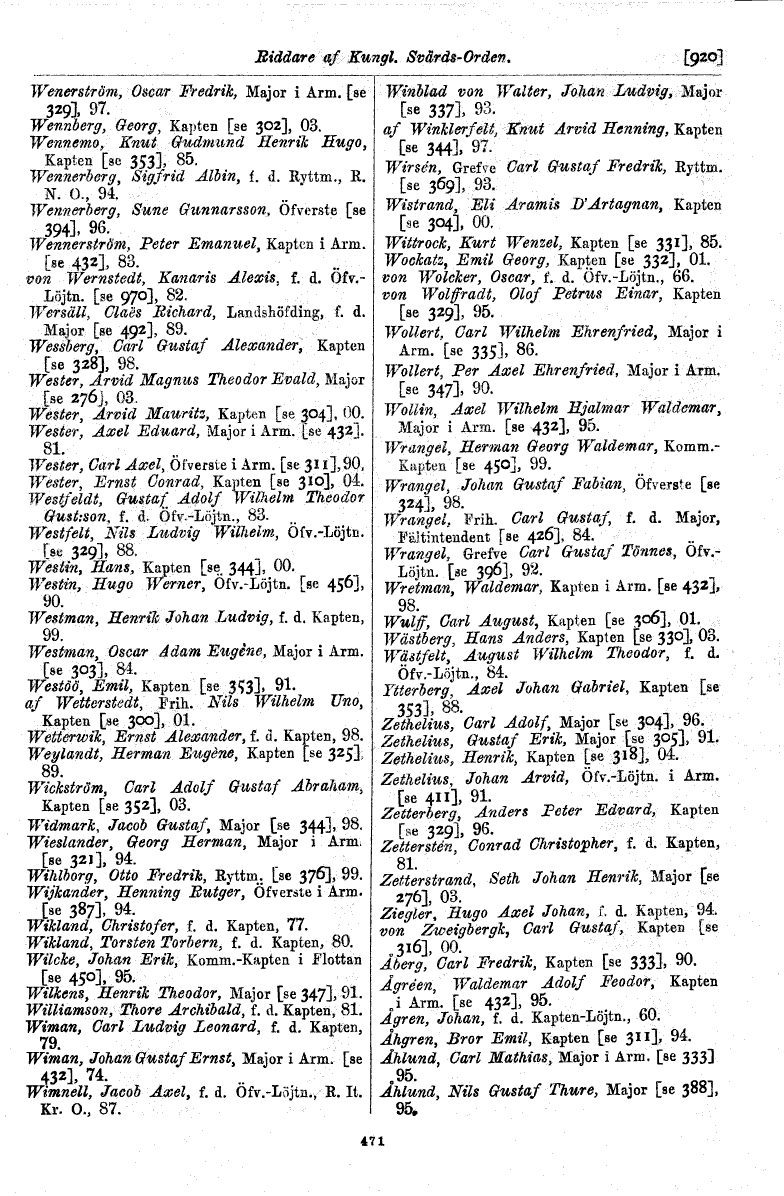 Riddare af Kungl. Svärds-Orden. [920]
Wenerström, Oscar Fredrik, Major i Arm. [se
329], 97.
Wennberg, Georg, Kapten [se 302], 03.
Wennemo, Knut Gudmund Henrik Hugo,
Kapten [se 353], 85.
Wennerberg, Sigfrid Albin, f. d. Ryttm., R.
N. O., 94.
Wennerberg, Sune Gunnarsson, Öfverste [se
394], 96.
Wennerström, Peter Emanuel, Kapten i Arm.
[se 432], 83.
von Wernstedt, Kanaris Alexis, f. d. Öfv.-
Löjtn. [se 970], 82.
Wersäll, Claës Richard, Landshöfding, f. d.
Major [se 492], 89.
Wessberg, Carl Gustaf Alexander, Kapten
[se 328], 98.
Wester, Arvid Magnus Theodor Evald, Major
[se 276], 03.
Wester, Arvid Mauritz, Kapten [se 304], 00.
Wester, Axel Eduard, Major i Arm. [se 432].
81.
Wester, Carl Axel, Öfverste i Arm. [se 311], 90,
Wester, Ernst Conrad, Kapten [se 310], 04.
Westfeldt, Gustaf Adolf Wilhelm Theodor
Gust:son, f. d. Öfv.-Löjtn., 83.
Westfelt, Nils Ludvig Wilhelm, Öfv.-Löjtn.
[se 329], 88.
Westin, Hans, Kapten [se 344], 00.
Westin, Hugo Werner, Öfv.-Löjtn. [se 456],
90.
Westman, Henrik Johan Ludvig, f. d. Kapten,
99.
Westman, Oscar Adam Eugène, Major i Arm.
[se 303], 84.
Westöö, Emil, Kapten [se 353], 91.
af Wetterstedt, Frih. Nils Wilhelm Uno,
Kapten [se 300], 01.
Wetterwik, Ernst Alexander, f. d. Kapten, 98.
Weylandt, Herman Eugène, Kapten [se 325],
89.
Wickström, Carl Adolf Gustaf Abraham,
Kapten [se 352], 03.
Widmark, Jacob Gustaf, Major [se 344], 98.
Wieslander, Georg Herman, Major i Arm.
[se 321], 94.
Wihlborg, Otto Fredrik, Ryttm. [se 376], 99.
Wijkander, Henning Rutger, Öfverste i Arm.
[se 387], 94.
Wikland, Christofer, f. d. Kapten, 77.
Wikland, Torsten Torbern, f. d. Kapten, 80.
Wilcke, Johan Erik, Komm.-Kapten i Flottan
[se 450], 95.
Wilkens, Henrik Theodor, Major [se 347], 91.
Williamson, Thore Archibald, f. d. Kapten, 81.
Wiman, Carl Ludvig Leonard, f. d. Kapten,
79.
Wiman, Johan Gustaf Ernst, Major i Arm. [se
432], 74.
Wimnell, Jacob Axel, f. d. Öfv.-Löjtn., R. It.
Kr. O., 87.
Winblad von Walter, Johan Ludvig, Major
[se 337], 93.
af Winklerfelt, Knut Arvid Henning, Kapten
[se 344], 97.
Wirsén, Grefve Carl Gustaf Fredrik, Ryttm.
[se 369], 93.
Wistrand, Eli Aramis D'Artagnan, Kapten
[se 304], 00.
Wittrock, Kurt Wenzel, Kapten [se 331], 85.
Wockatz, Emil Georg, Kapten [se 332], 01.
von Wolcker, Oscar, f. d. Öfv.-Löjtn., 66.
von Wolffradt, Olof Petrus Einar, Kapten
[se 329], 95.
Wollert, Carl Wilhelm Ehrenfried, Major i
Arm. [se 335], 86.
Wollert, Per Axel Ehrenfried, Major i Arm.
[se 347], 90.
Wollin, Axel Wilhelm Hjalmar Waldemar,
Major i Arm. [se 432], 95.
Wrangel, Herman Georg Waldemar, Komm.-
Kapten [se 450], 99.
Wrangel, Johan Gustaf Fabian, Öfverste [se
324], 98.
Wrangel, Frih. Carl Gustaf, f. d. Major,
Fältintendent [se 426], 84.
Wrangel, Grefve Carl Gustaf Tönnes, Öfv.-
Löjtn. [se 396], 92.
Wretman, Waldemar, Kapten i Arm. [se 432],
98.
Wulff, Carl August, Kapten [se 306], 01.
Wästberg, Hans Anders, Kapten [se 330], 03.
Wästfelt, August Wilhelm Theodor, f. d.
Öfv.-Löjtn., 84.
Ytterberg, Axel Johan Gabriel, Kapten [se
353], 88.
Zethelius, Carl Adolf, Major [se 304], 96.
Zethelius, Gustaf Erik, Major [se 305], 91.
Zethelius, Henrik, Kapten [se 318], 04.
Zethelius, Johan Arvid, Öfv.-Löjtn. i Arm.
[se 411], 91.
Zetterberg, Anders Peter Edvard, Kapten
[se 329], 96.
Zettersten, Conrad Christopher, f. d. Kapten,
81.
Zetterstrand, Seth Johan Henrik, Major [se
276], 03.
Ziegler, Hugo Axel Johan, f. d. Kapten, 94.
von Zweigbergk, Carl Gustaf, Kapten [se
316], 00.
Åberg, Carl Fredrik, Kapten [se 333], 90.
Ågréen, Waldemar Adolf Feodor, Kapten
i Arm. [se 432], 95.
Ågren, Johan, f. d. Kapten-Löjtn., 60.
Åhgren, Bror Emil, Kapten [se 311], 94.
Åhlund, Carl Mathias, Major i Arm. [se 333]
95.
Åhlund, Nils Gustaf Thure, Major [se 388],
95.
471